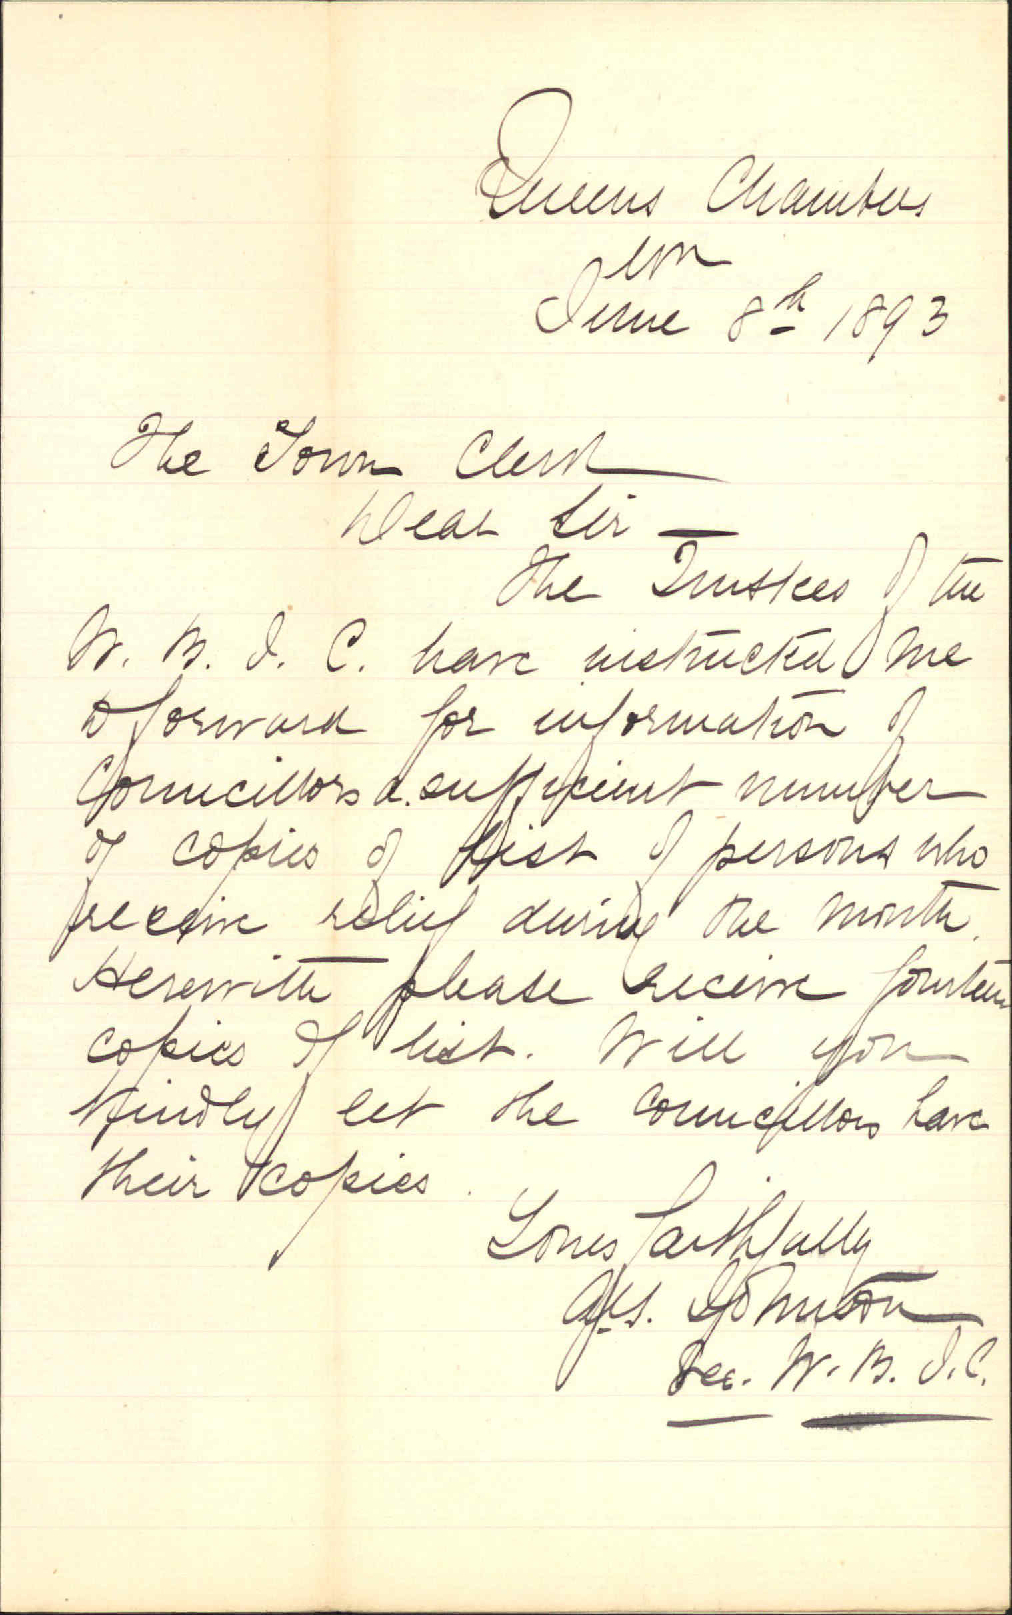 Queens Chambers
Wn
June 8th 1893
The Town Clerk
Dear Sir —
The Trustees of the
W. B. I. C. have instructed me
to forward for information of
Councillors a sufficient number
of copies of list of persons who
receive relief during the month.
Herewith please receive fourteen
copies of list. Will you
kindly let the councillors have
their copies.
Yours faithfully
Johnston
Sec. W. B. I. C.